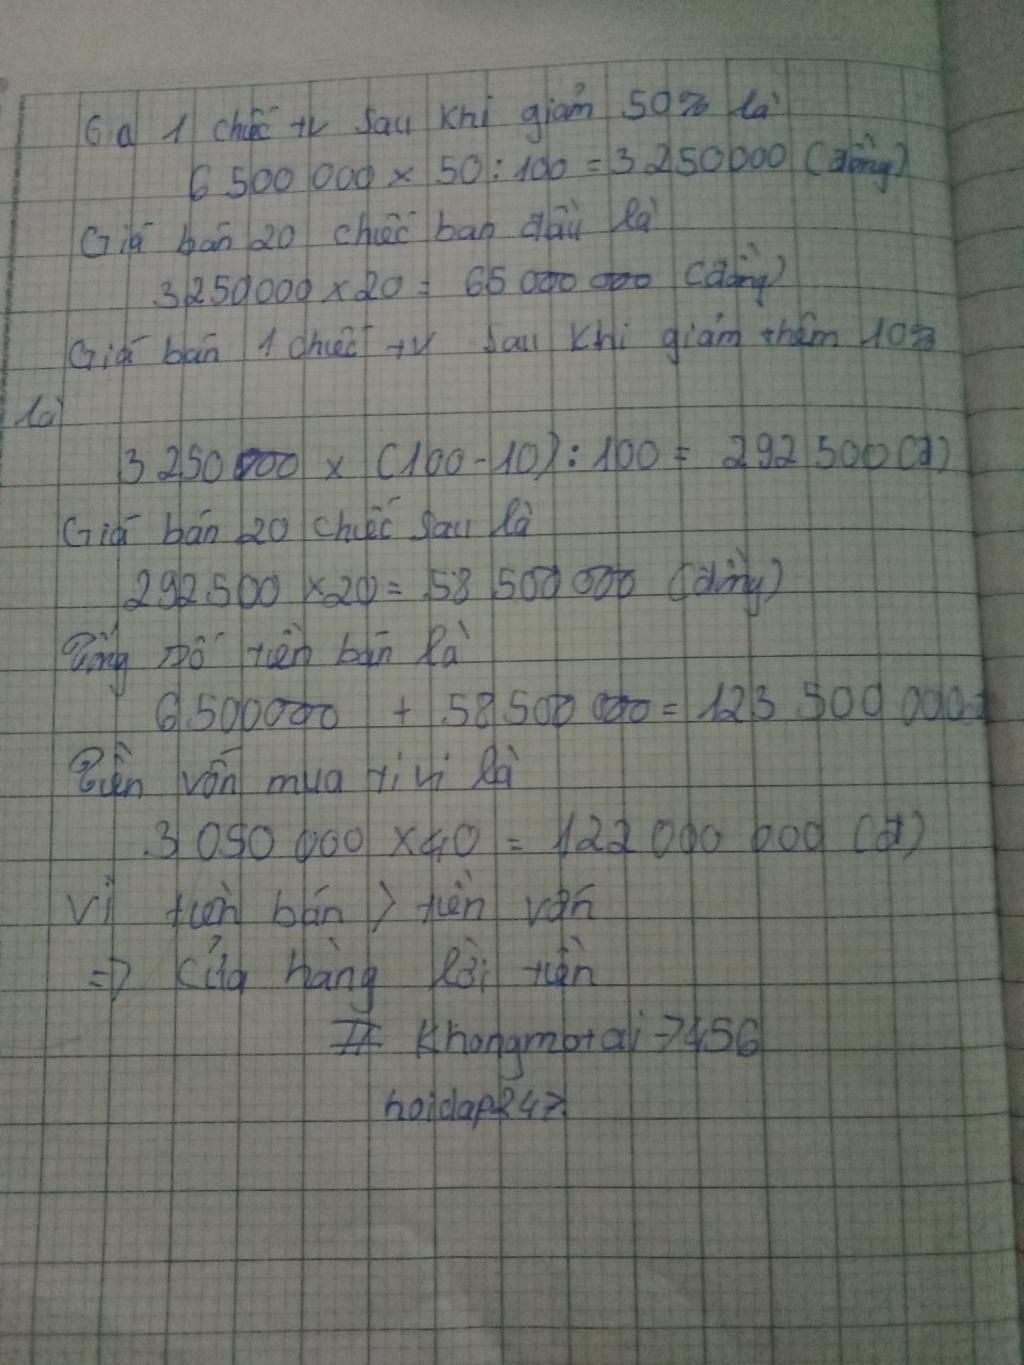 Gá 1 chiếc tv sau khi giảm 50% là
6 500 000 × 50 : 100 = 3 250 000 (đồng)
Giá bán 20 chiếc ban đầu là
3 250 000 × 20 = 65 000 000 (đồng)
Giá bán 1 chiếc tv sau khi giảm thêm 10%
là
3 250 000 × (100 - 10) : 100 = 292 500 (đ)
Giá bán 20 chiếc sau là
292 500 × 20 = 58 500 000 (đồng)
Tổng số tiền bán là
6 500 000 + 58 500 000 = 123 500 000 đ
Tiền vốn mua tivi là
3 050 000 × 40 = 122 000 000 (đ)
Vì tiền bán > tiền vốn
=> Cửa hàng lời tiền
# Khongmotai7456
hoidap247